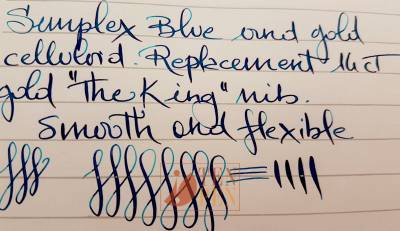 Simplex Blue and gold
celluloid. Replacement 14 CT
gold "The King" nib.
Smooth and flexible